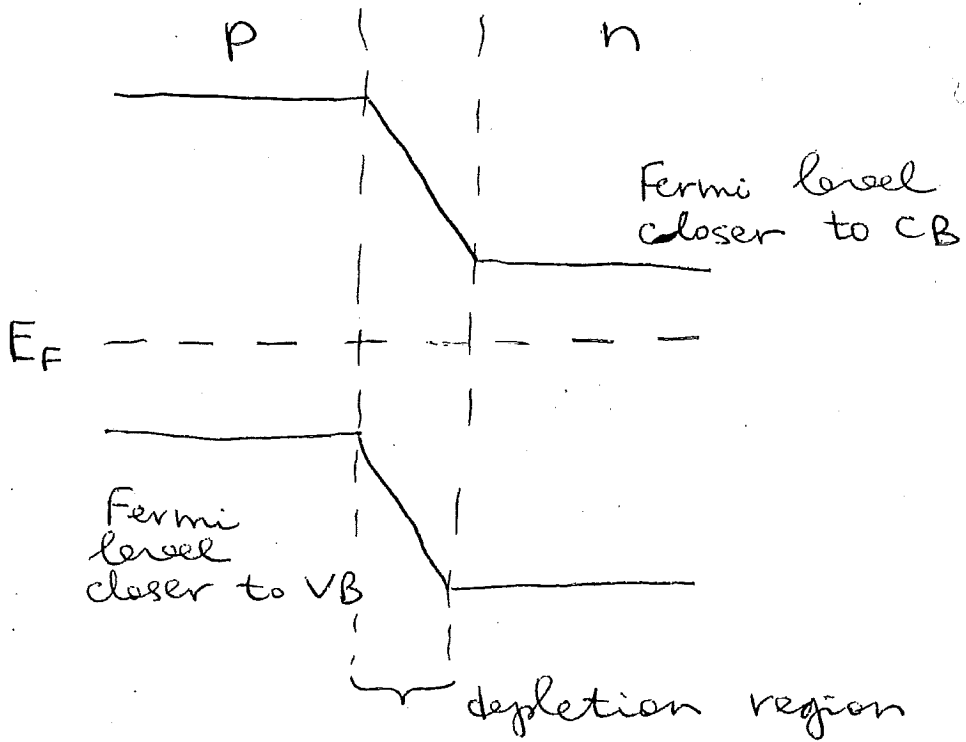 p n
Fermi level
closer to CB
E_F
Fermi
level
closer to VB
depletion region